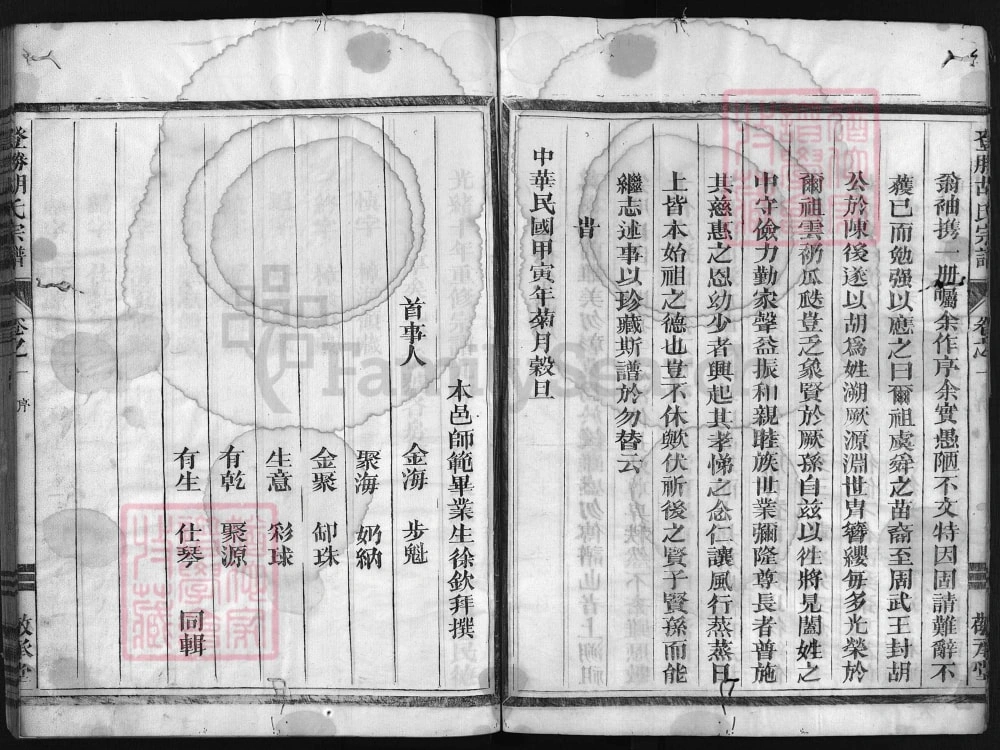 翁袖携一册囑余作序余實愚陋不文特因固請難辭不
獲已而勉强以應之曰爾祖虞舜之苗裔至周武王封胡
公於陳後遂以胡爲姓溯厥源淵世胄簪纓每多光榮於
爾祖雲礽瓜瓞豈乏象賢於厥孫自兹以徃將見闔姓之
中守儉力勤家聲益振和親睦族世業彌隆尊長者普施
其慈惠之恩幼少者興起其孝悌之念仁讓風行蒸蒸日
上皆本始祖之德也豈不休歟伏祈後之賢子賢孫而能
繼志述事以珍藏斯譜於勿替云
旹
中華民國甲寅年菊月穀旦
本邑師範畢業生徐欽拜撰
首事人 金海 步魁
聚海 奶納
金聚 卸珠
生意 彩球
有乾 聚源
有生 仕琴 同輯
登勝胡氏宗譜 卷之一 序 敬承堂
FamilySearch